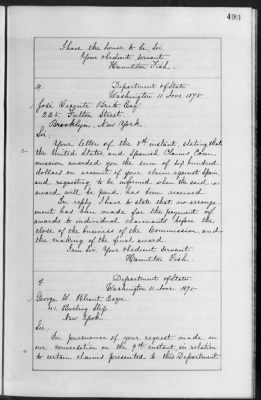 493
I have the honor to be, Sir,
Your obedient servant
Hamilton Fish.
Department of State
Washington 11 Nov. 1875
José Vicente Brito Esq
Fulton Street
Brooklyn, New York.
Sir,
Your letter of the 8th instant, stating that
the United States and Spanish Claims Com-
mission awarded you the sum of six hundred
dollars on account of your claim against Spain
and requesting to be informed when the said
award will be paid, has been received.
In reply, I have to state that no arrange-
ment has been made for the payment of
awards to individual claimants before the
close of the business of the Commission and
the making of the final award.
I am Sir, Your obedient servant
Hamilton Fish.
Department of State
Washington 11 Nov. 1875
George W. Blunt Esqre
Burling Slip,
New York.
Sir,
In pursuance of your request made in
our conversation on the 9th instant, in relation
to certain claims presented to this Department